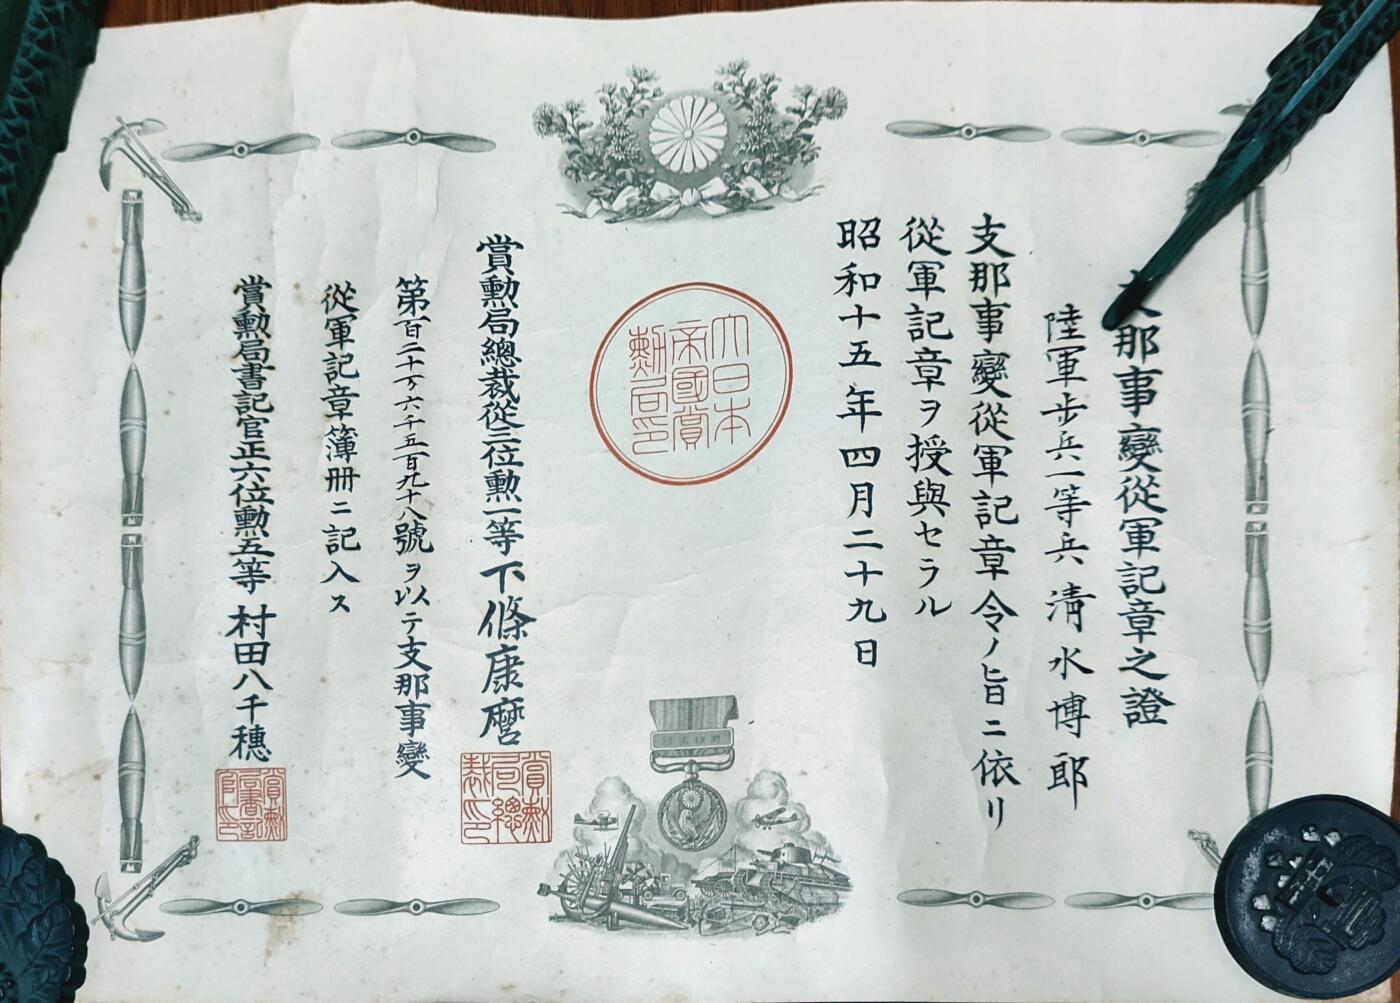 支那事變從軍記章之證
陸軍步兵一等兵 清水博郎
支那事變從軍記章令ノ旨ニ依リ
從軍記章ヲ授與セラル
昭和十五年四月二十九日
大日本
帝國賞
勳局印
賞勳局總裁從三位勳一等下條康麿
賞勳
局總
裁印
第百二十万六千五百九十八號ヲ以テ支那事變
從軍記章簿冊ニ記入ス
賞勳局書記官正六位勳五等 村田八千穗
賞勳
局書記
官印